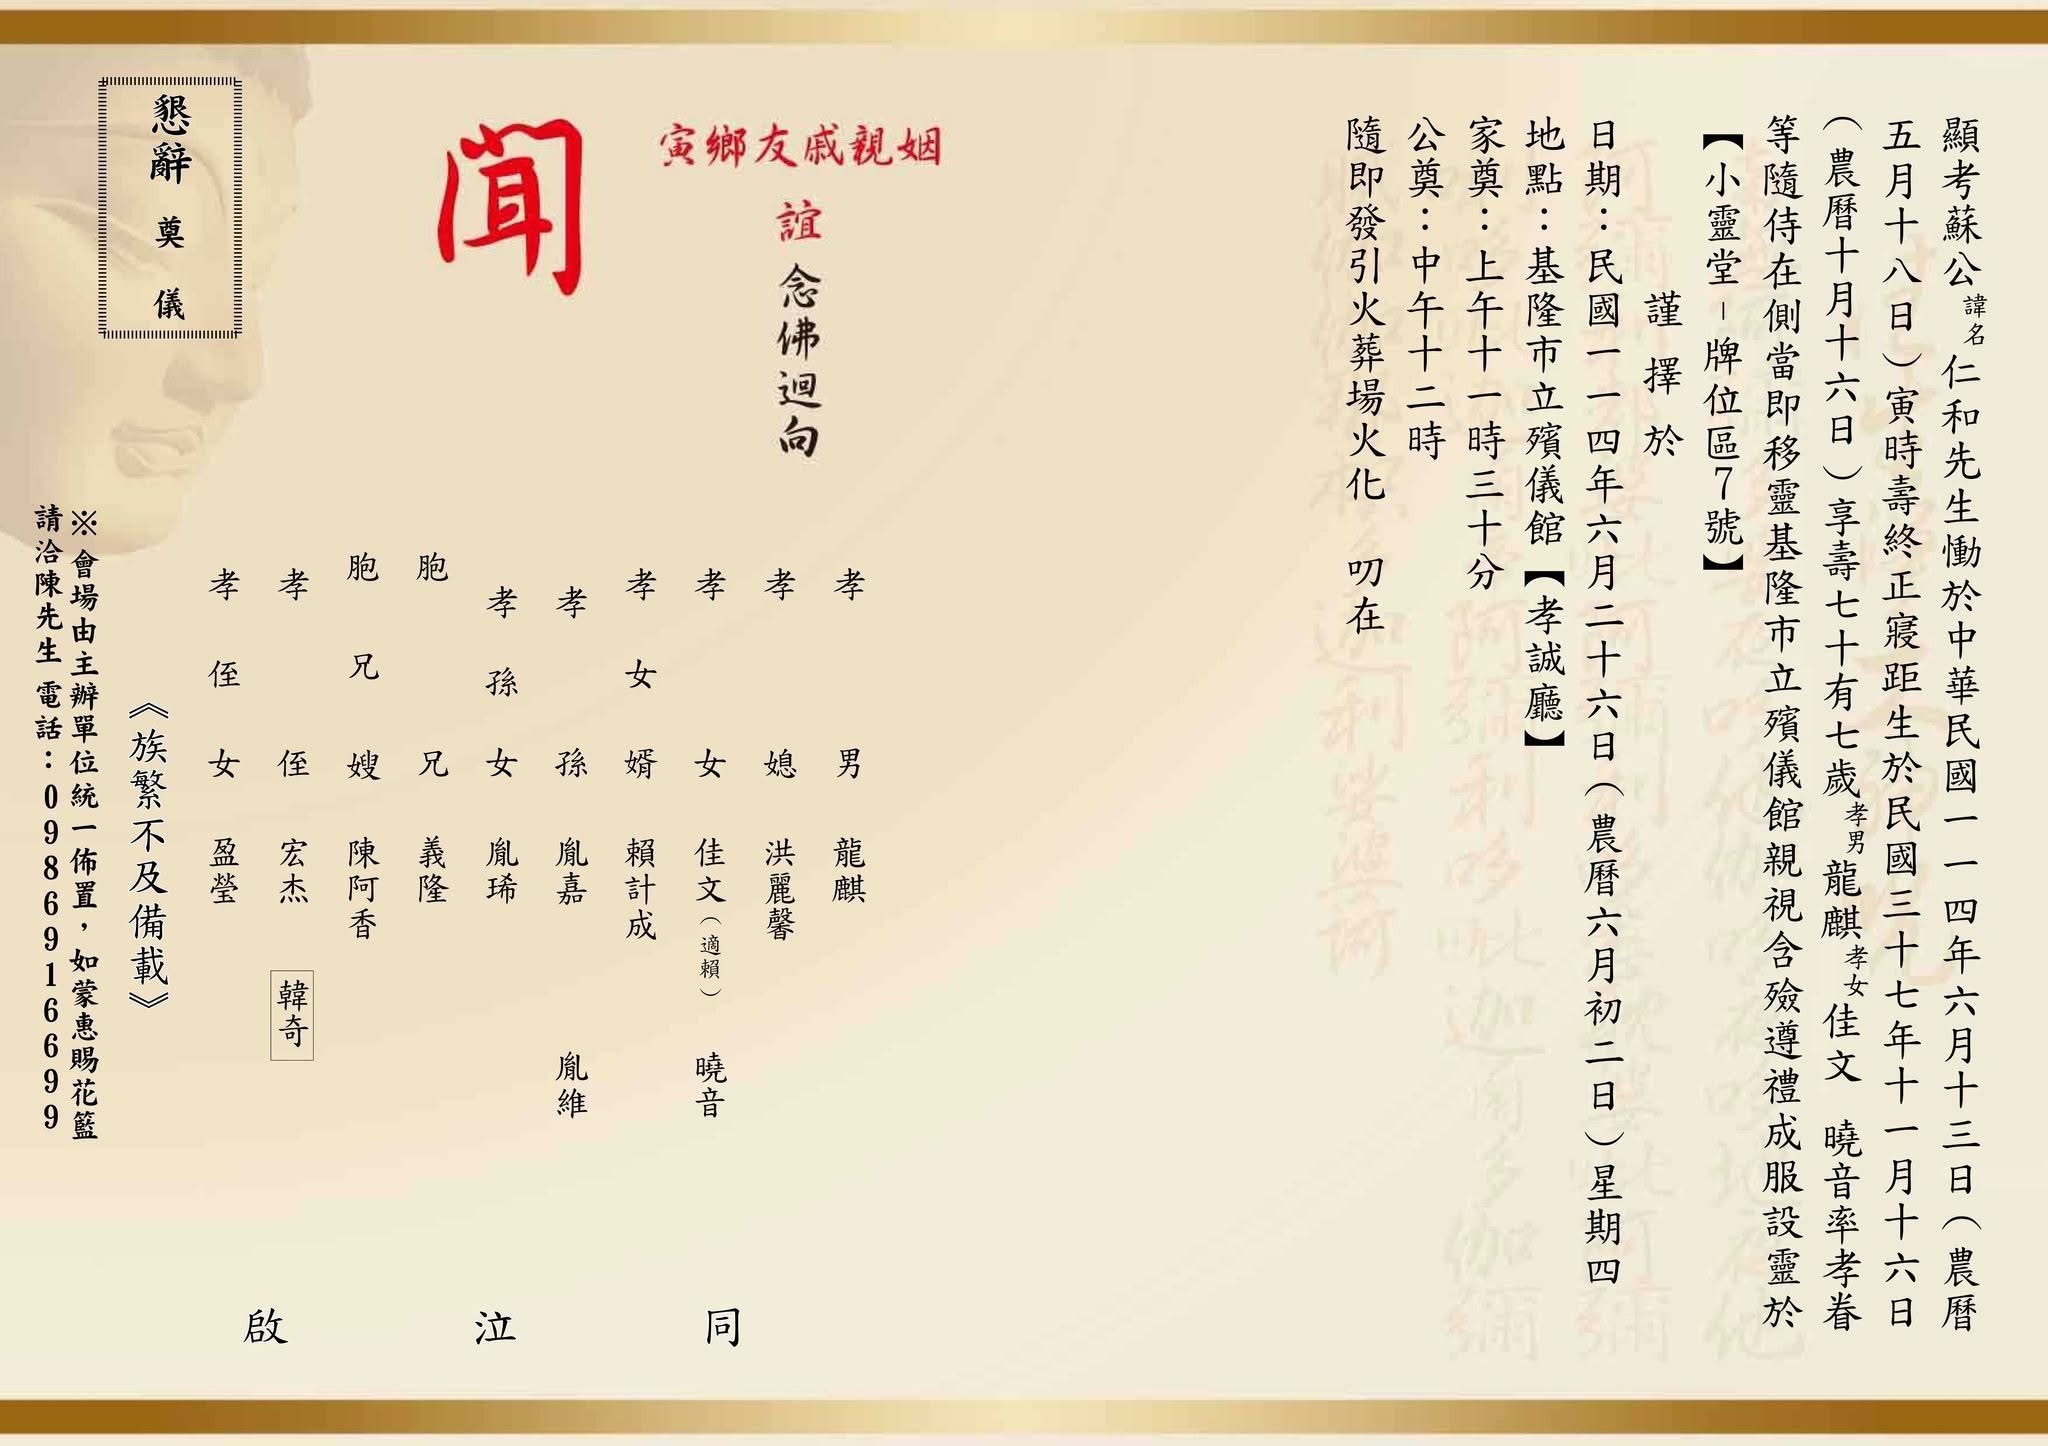 顯考蘇公諱名仁和先生慟於中華民國一一四年六月十三日（農曆
五月十八日）寅時壽終正寢距生於民國三十七年十一月十六日
（農曆十月十六日）享壽七十有七歲孝男龍麒孝女佳文　曉音率孝眷
等隨侍在側當即移靈基隆市立殯儀館親視含殮遵禮成服設靈於
【小靈堂－牌位區7號】
謹擇於
日期：民國一一四年六月二十六日（農曆六月初二日）星期四
地點：基隆市立殯儀館【孝誠廳】
家奠：上午十一時三十分
公奠：中午十二時
隨即發引火葬場火化　叨在
姻親戚友鄉寅
誼念佛迴向
聞
孝男　龍麒
孝媳　洪麗馨
孝女　佳文（適賴）　曉音
孝女婿　賴計成
孝孫　胤嘉　胤維
孝孫女　胤琋
胞兄　義隆
胞兄嫂　陳阿香
孝侄　宏杰　韓奇
孝侄女　盈瑩
同泣啟
《族繁不及備載》
懇辭奠儀
※會場由主辦單位統一佈置，如蒙惠賜花籃
請洽陳先生 電話：0986916699